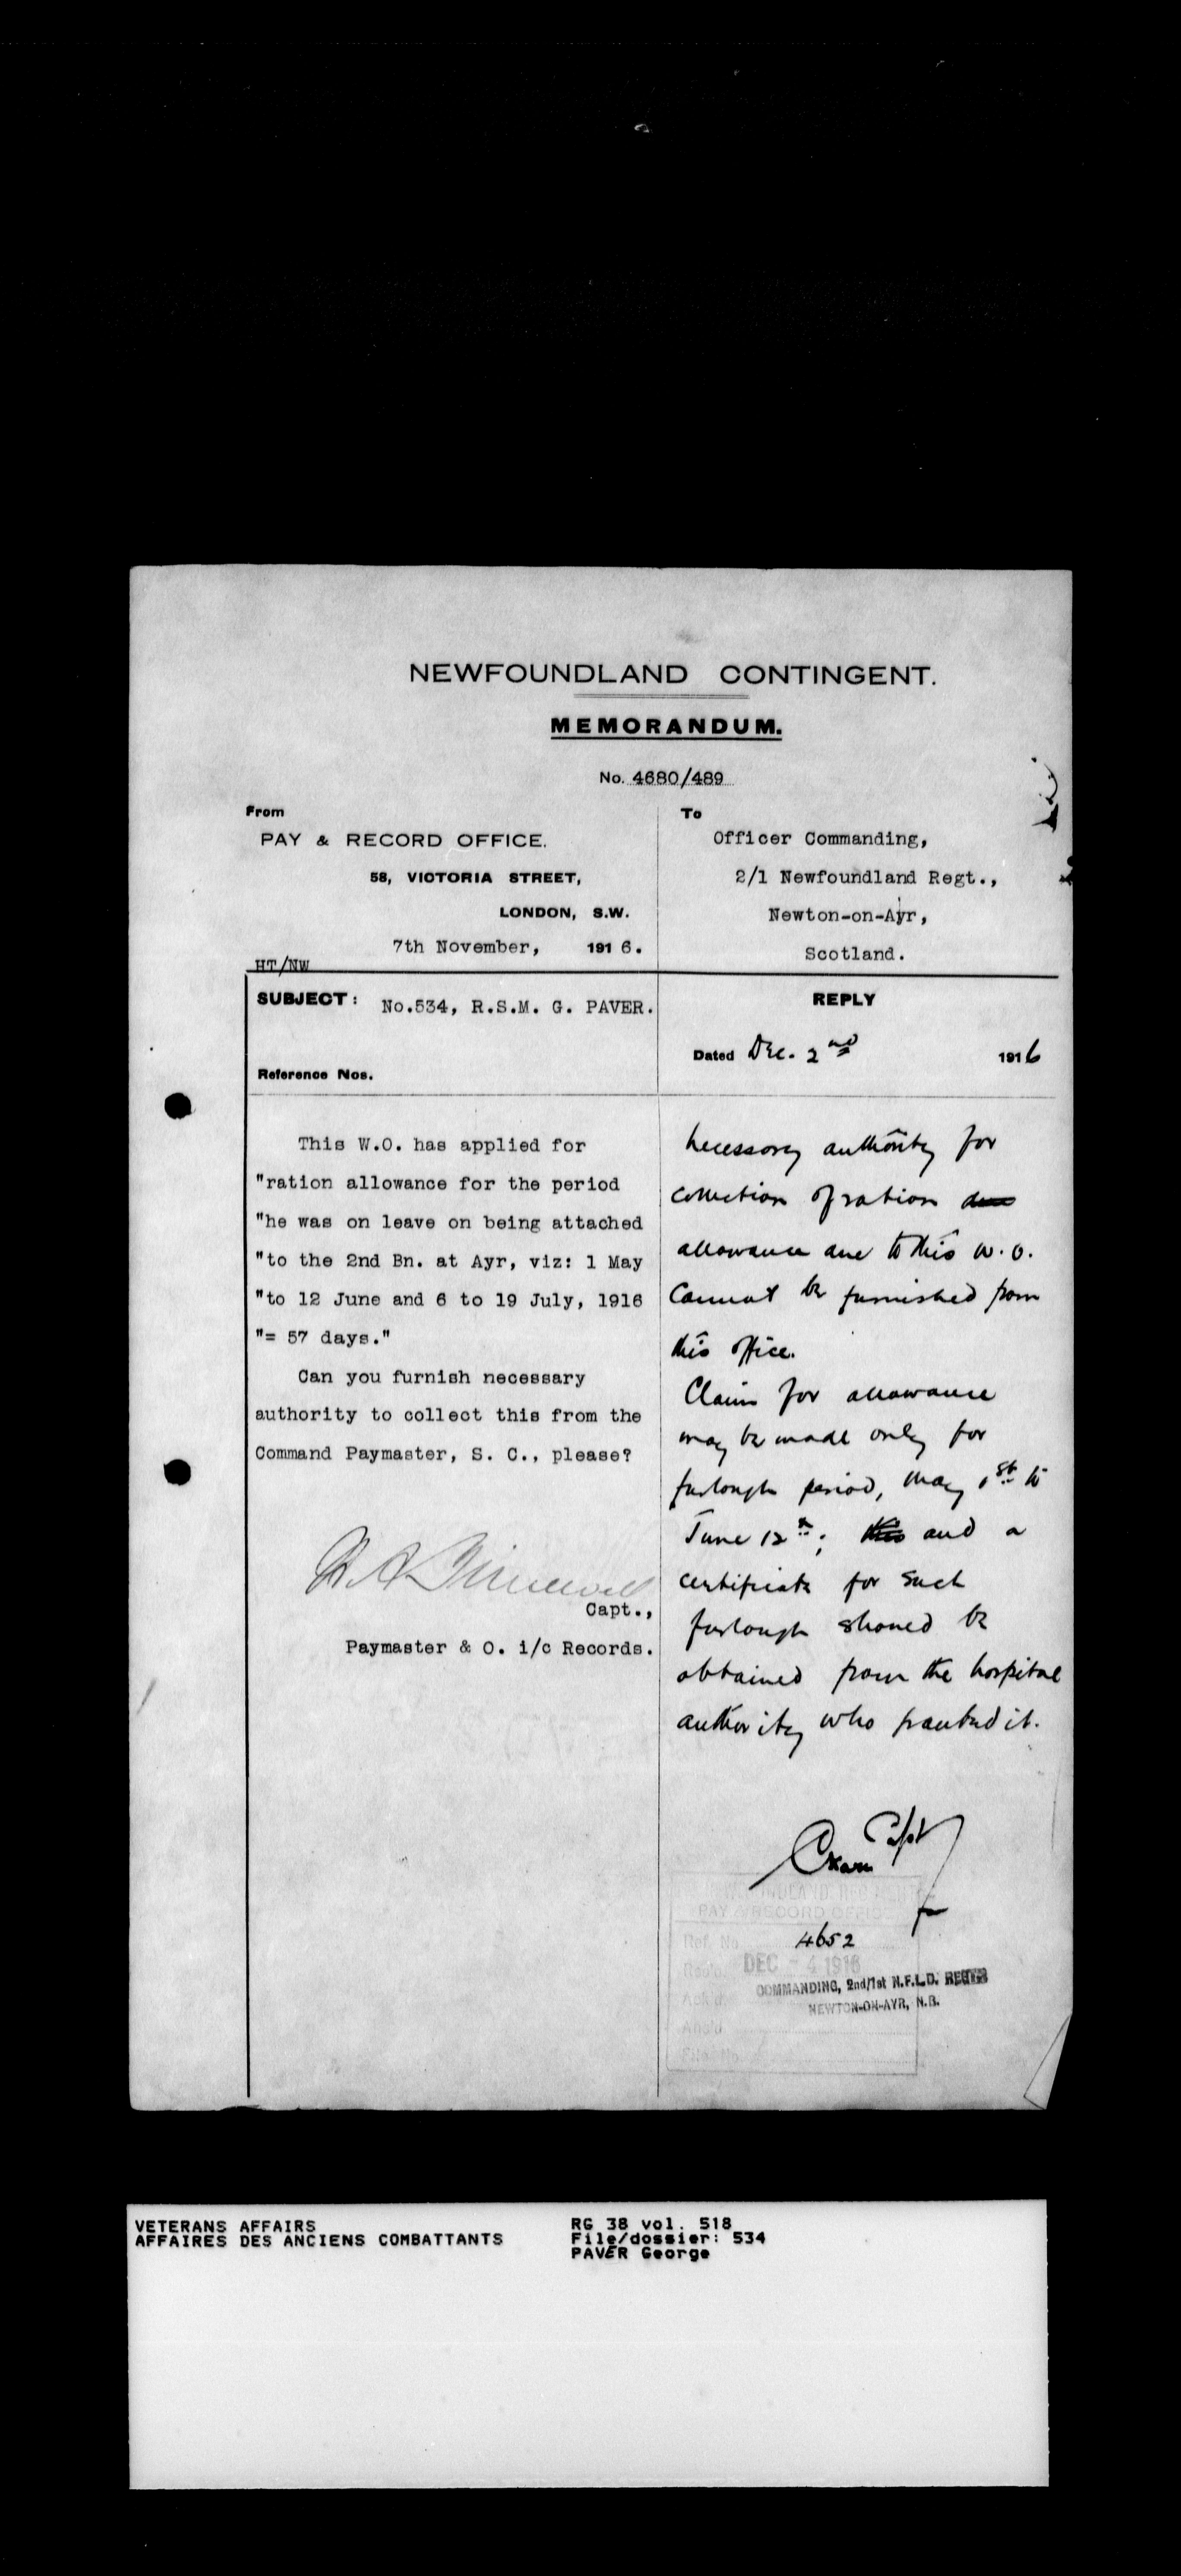 NEWFOUNDLAND CONTINGENT.
MEMORANDUM.
No. 4680/489
From
PAY & RECORD OFFICE.
58, VICTORIA STREET,
LONDON, S.W.
7th November, 1916.
HT/NW
To
Officer Commanding,
2/1 Newfoundland Regt.,
Newton-on-Ayr,
Scotland.
SUBJECT: No.534, R.S.M. G. PAVER.
Reference Nos.
This W.O. has applied for
"ration allowance for the period
"he was on leave on being attached
"to the 2nd Bn. at Ayr, viz: 1 May
"to 12 June and 6 to 19 July, 1916
"= 57 days."
Can you furnish necessary
authority to collect this from the
Command Paymaster, S. C., please?
Capt.,
Paymaster & O. i/c Records.
REPLY
Dated Dec. 2nd 1916
necessary authority for
collection of ration
allowance due to this W.O.
Cannot be furnished from
this office.
Claim for allowance
may be made only for
furlough period, May 1st to
June 12th; this and a
certificate for such
furlough should be
obtained from the hospital
authority who granted it.
Capt
for
NEWFOUNDLAND REGIMENT
PAY & RECORD OFFICE
Ref. No. 4652
Rec'd. DEC - 4 1916
COMMANDING, 2nd/1st N.F.L.D. REGT
NEWTON-ON-AYR, N.B.
Ack'd
Ans'd
File No.
VETERANS AFFAIRS
AFFAIRES DES ANCIENS COMBATTANTS
RG 38 vol. 518
File/dossier: 534
PAVER George